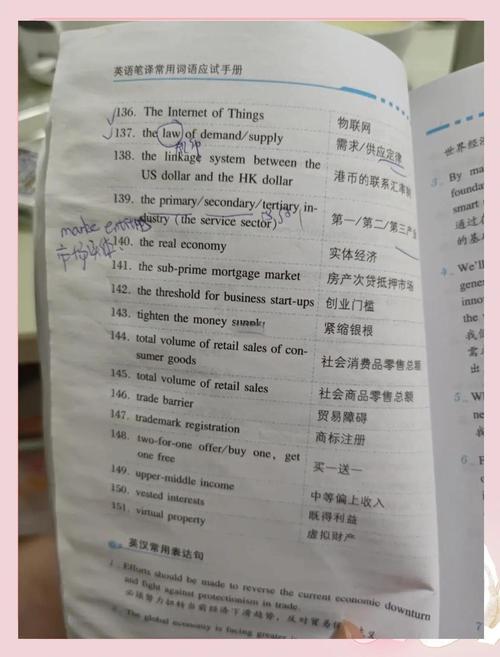 英语笔译常用词语应试手册
136. The Internet of Things 物联网
137. the law of demand/supply 需求/供应定律
138. the linkage system between the
US dollar and the HK dollar 港币的联系汇率制
139. the primary/secondary/tertiary in-
dustry (the service sector) 第一/第二/第三产业
140. the real economy 实体经济
141. the sub-prime mortgage market 房产次贷抵押市场
142. the threshold for business start-ups 创业门槛
143. tighten the money 紧缩银根
144. total volume of retail sales of con-
sumer goods 社会消费品零售总额
145. total volume of retail sales 社会商品零售总额
146. trade barrier 贸易障碍
147. trademark registration 商标注册
148. two-for-one offer/buy one, get
one free 买一送一
149. upper-middle income 中等偏上收入
150. vested interests 既得利益
151. virtual property 虚拟财产
英汉常用表达句
1. Efforts should be made to reverse the current economic downturn
and fight against protectionism in trade.
必须努力扭转当前经济下滑趋势，反对贸易保
The global economy is facing greater
世界经济
3. By ma
founda
smart
通过在
的基
4. We'll
gene
innov
the
我们
需
出
5. W
我
6.
7